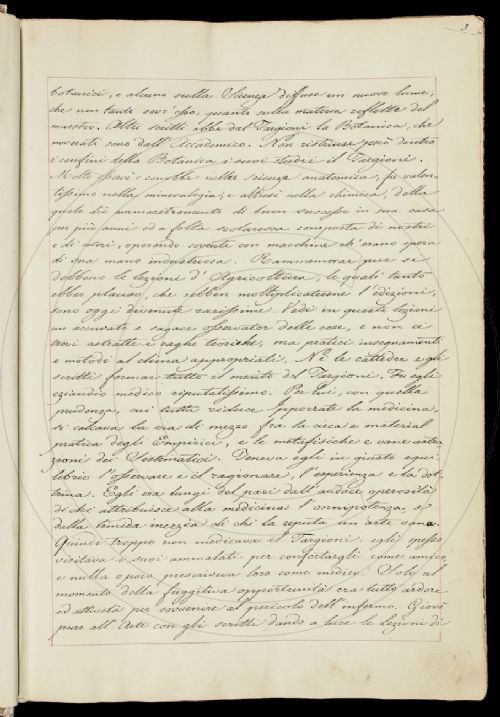 3
botanici, e alcuno sulla Scienza diffuse un nuovo lume,
che non tanto sovr'esso, quanto sulla materia riflette del
maestro. Altri scritti ebbe dal Targioni la Botanica, che
noverati sono dall'Accademico. Non ristrinse però dentro
i confini della Botanica i suoi studi il Targioni.
Molto osservò e conobbe nella scienza anatomica, fu valen-
tissimo nella mineralogia, e altresì nella chimica, della
quale diè ammaestramento di buon successo in sua casa
per più anni ed a folta scolaresca composta di nostri
e di esteri, operando sovente con macchine ch'erano opera
di sua mano industriosa. Rammemorar pur si
debbono le lezioni d'Agricoltura, le quali tanto
ebber plauso, che sebben moltiplicatesene l'edizioni,
sono oggi divenute rarissime. Vedi in queste lezioni
un accurato e sagace osservator delle cose, e non ci
trovi astratte e vaghe teorie, ma pratici insegnamenti
e metodi al clima appropriati. Nè le cattedre e gli
scritti formar tutto il merito del Targioni. Fu egli
eziandio medico riputatissimo. Per lui, con quella
prudenza, cui tutta riduce Ippocrate la medicina,
si calcava la via di mezzo fra la cieca e material
pratica degli Empirici, e le metafisiche e vane astra-
zioni dei Sistematici. Teneva egli in giusto equi-
librio l'osservare e il ragionare, l'esperienza e la dot-
trina. Egli era lungi del pari dall'audace operosità
di chi attribuisce alla medicina l'onnipotenza, e
dalla timida inerzia di chi la reputa un'arte vana.
Quindi troppo non medicava il Targioni: egli spesso
visitava i suoi ammalati per confortargli come amico,
e nulla o poco prescriveva loro come medico. Solo al
momento della fuggitiva opportunità era tutto ardore
ed attività per sovvenire al pericolo dell'infermo. Giovò
pure all'Arte con gli scritti dando a luce le Lezioni di